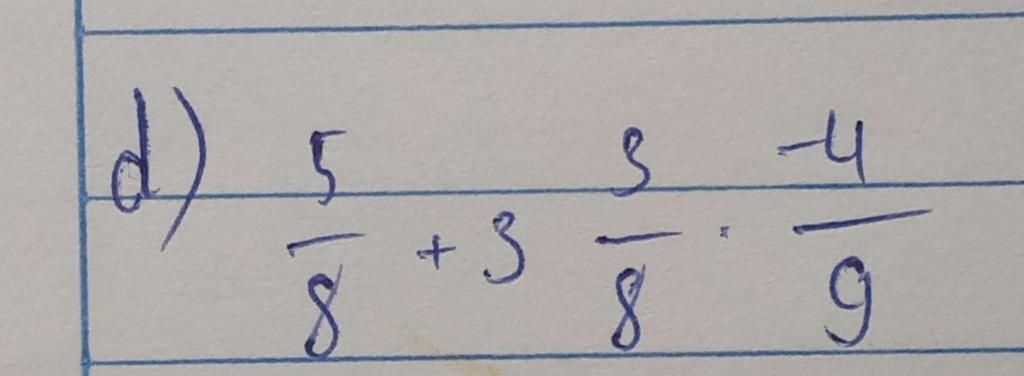 d) 5/8 + 3 3/8 · -4/9